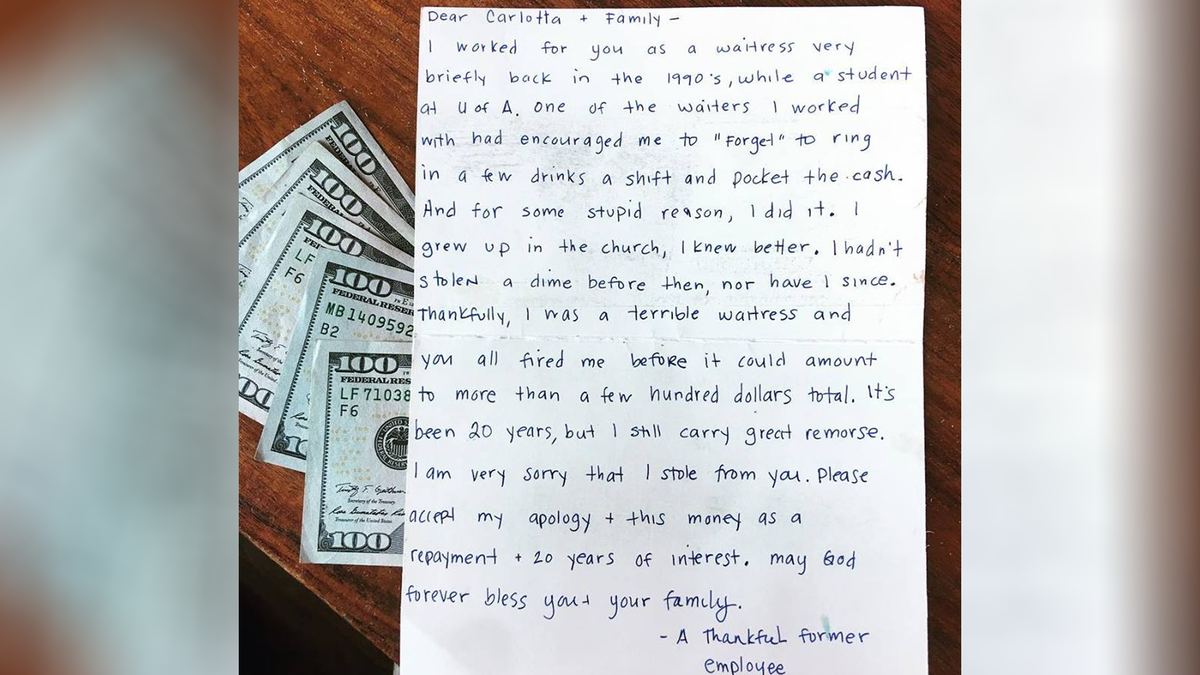 Dear Carlotta + Family -
I worked for you as a waitress very
briefly back in the 1990's, while a student
at U of A. One of the waiters I worked
with had encouraged me to "Forget" to ring
in a few drinks a shift and pocket the cash.
And for some stupid reason, I did it. I
grew up in the church, I knew better. I hadn't
stolen a dime before then, nor have I since.
Thankfully, I was a terrible waitress and
you all fired me before it could amount
to more than a few hundred dollars total. It's
been 20 years, but I still carry great remorse.
I am very sorry that I stole from you. Please
accept my apology + this money as a
repayment + 20 years of interest. may God
forever bless you + your family.
- A thankful former
employee
100
100
100
LF
F6
100
FEDERAL RESER
MB1409592
B2
100
FEDERAL RES
LF71038
F6
Secretary of the Treasury
Treasurer of the United States
100